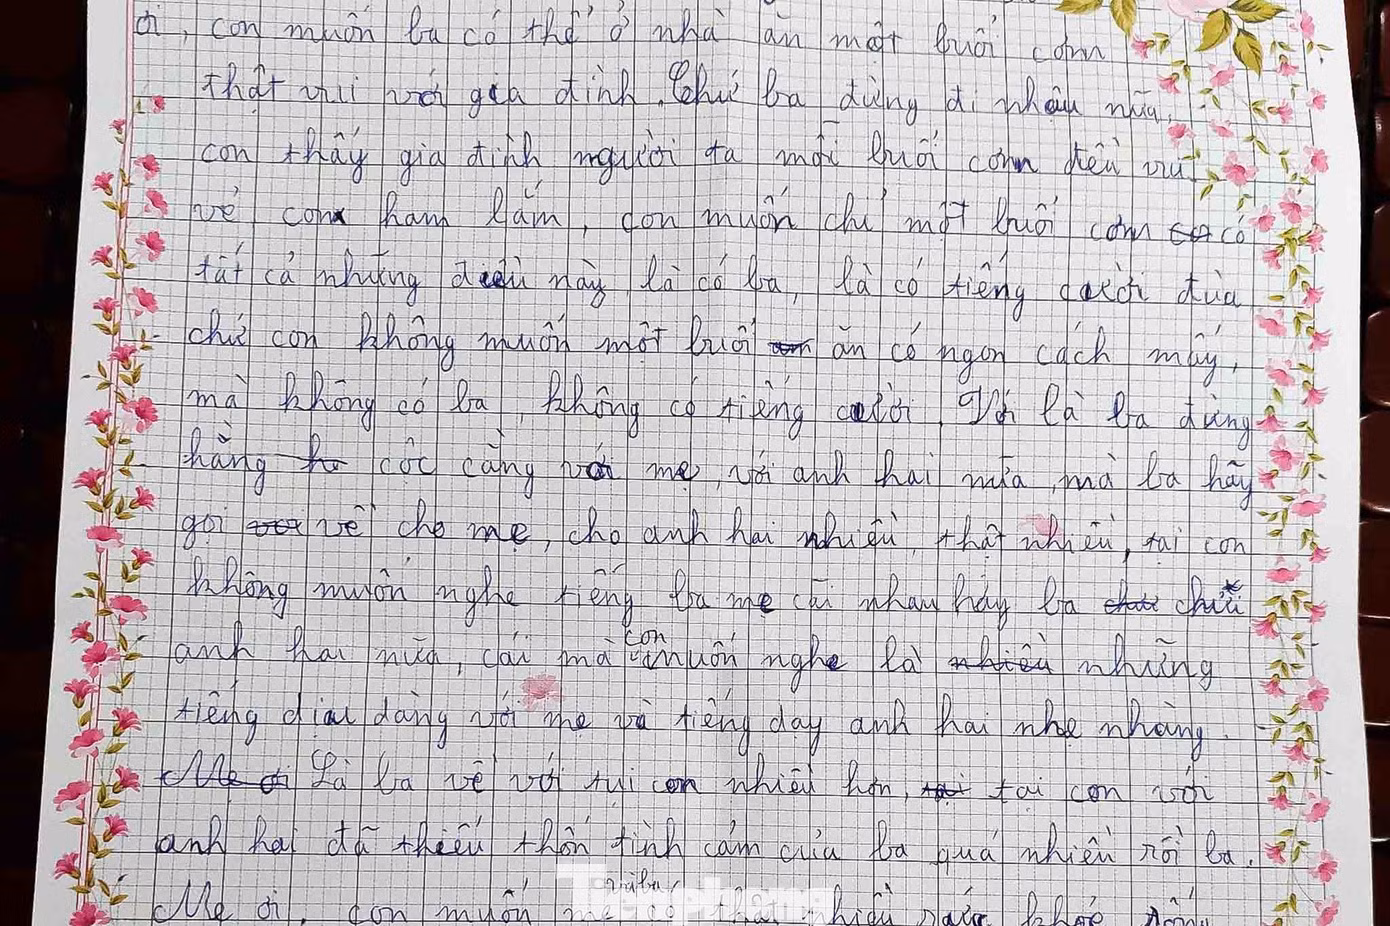 ơi, con muốn ba có thể ở nhà ăn một buổi cơm
thật vui với gia đình. Chứ ba đừng đi nhậu nữa,
con thấy gia đình người ta mỗi buổi cơm đều vui
vẻ con ham lắm, con muốn chỉ một buổi cơm có
tất cả những điều này là có ba, là có tiếng cười đùa
chứ con không muốn một buổi ăn có ngon cách mấy,
mà không có ba, không có tiếng cười. Với là ba đừng
hằng cộc cằng với mẹ, với anh hai nữa, mà ba hãy
gọi về cho mẹ, cho anh hai nhiều, thật nhiều, tại con
không muốn nghe tiếng ba mẹ cãi nhau hay ba chửi
anh hai nữa, cái mà con muốn nghe là những
tiếng dịu dàng với mẹ và tiếng dạy anh hai nhẹ nhàng.
Là ba về với tụi con nhiều hơn, tại con với
anh hai đã thiếu thốn tình cảm của ba quá nhiều rồi ba.
Mẹ ơi, con muốn mẹ và ba có thể nhiều
Tiền phong